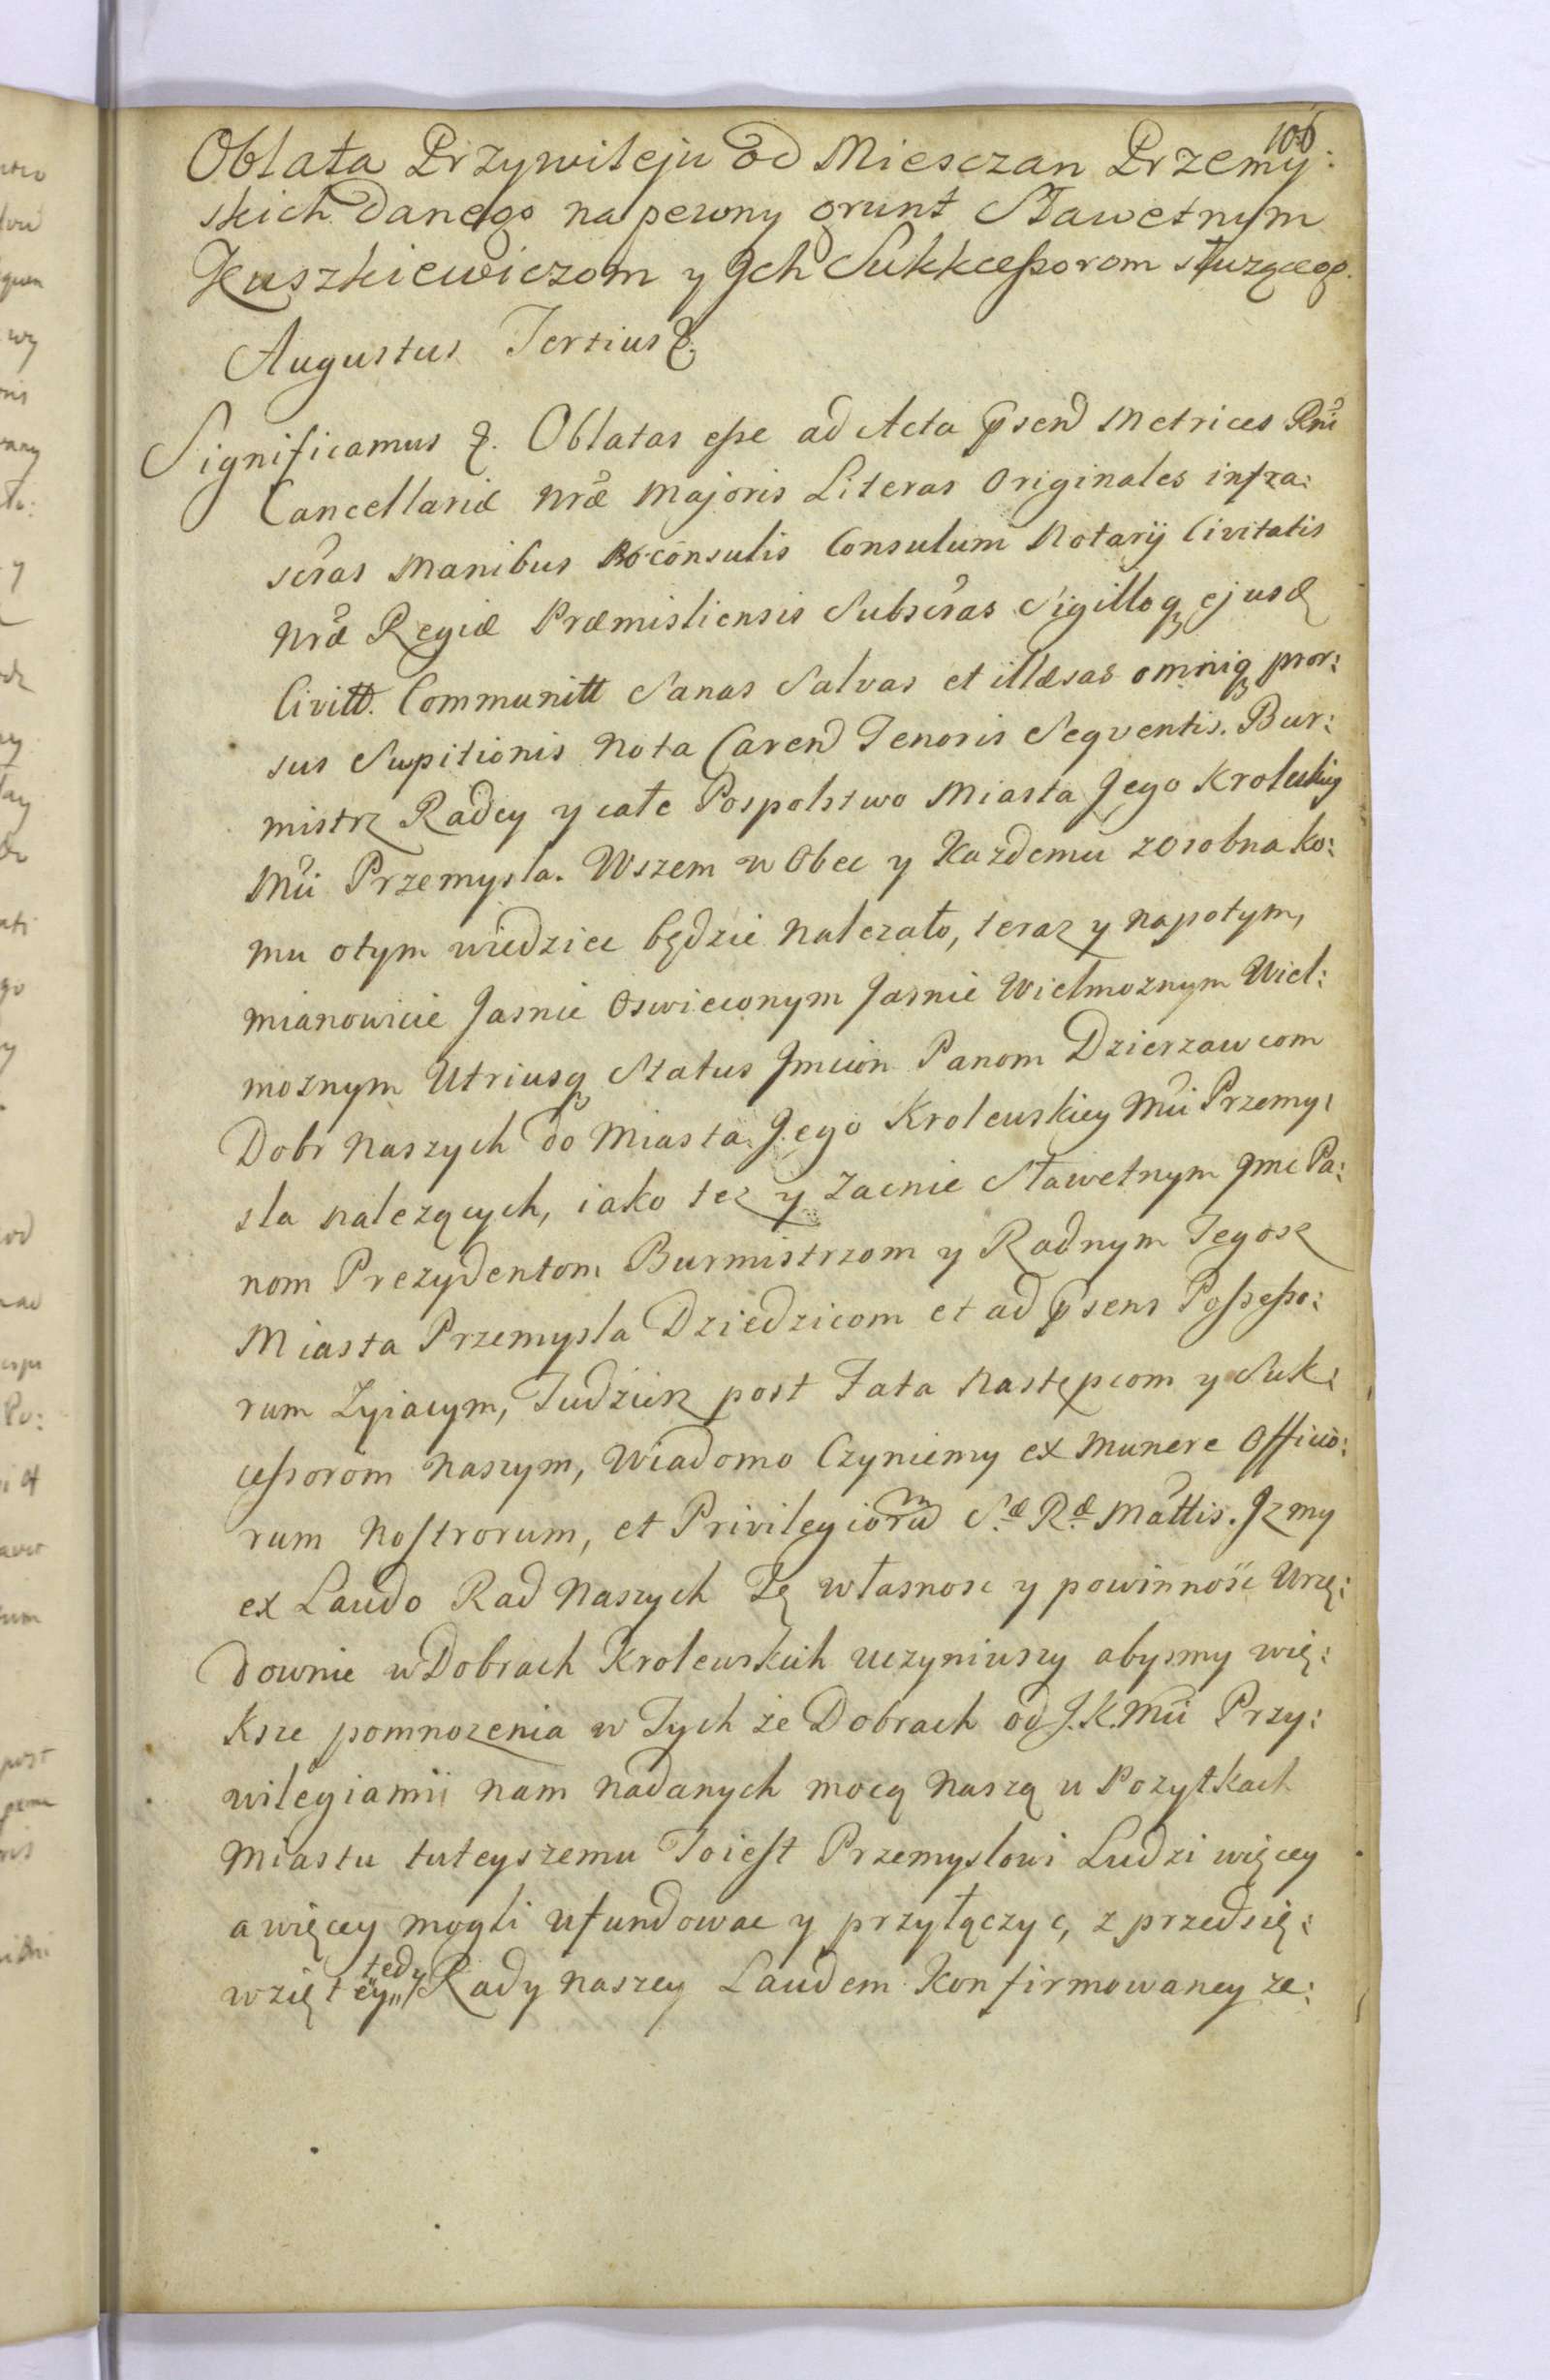 106
Oblata Przywileju od Miesczan Przemy:
skich danego na pewny grunt Sławetnym
Kuszkiewiczom y Jch Sukkcessorom służącego.
Augustus Tertius &.
Significamus &. Oblatas esse ad Acta pñsend Metrices Rñi
Cancellariæ nræ Majoris Literas Originales infra:
scras Manibus Proconsulis Consulum Notarij Civitatis
nræ Regiæ Præmisliensis Subscras Sigilloq ejusd
Civitt. Communitt Sanas Salvas et illæsas omniq pror:
sus Supitionis nota Carend Tenoris Seqventis. Bur:
mistrz Radcy y całe Pospolstwo Miasta Jego Krolewskiy
Mci Przemysla. Wszem w Obec y Kazdemu zosobna ko:
mu otym wiedziec będzie nalezało, teraz y napotym,
mianowicie Jasnie Oswieconym Jasnie Wielmoznym Wiel:
moznym Utriusq Status Jmciom Panom Dzierzawcom
Dobr Naszych do Miasta Jego Krolewskiey Mci Przemy:
sla nalezących, iako tez y Zacnie Sławetnym Jmc Pa:
nom Prezydentom Burmistrzom y Radnym Tegosz
Miasta Przemysla Dziedzicom et ad pñsens Possesso:
rum Zyiacym, Tudziez post Fata Następcom y Suk:
cessorom Naszym, Wiadomo Czyniemy ex Munere Officio:
rum Nostrorum, et Privilegiorum S.æ R.æ Mattis. Jz my
ex Laudo Rad Naszych Tę własnosc y powinnosc Urzę:
downie w Dobrach Krolewskich uczyniwszy abysmy wię:
ksze pomnozenia w Tych że Dobrach od J.K.Mci Przy:
wilegiamii nam nadanych mocą Naszą w Pozytkach
Miastu tuteyszemu Toiest Przemyslowi Ludzi więcey
a więcey mogli ufundowac y przyłączyc, z przedsię:
wzię tey tedy Rady naszey Laudem Konfirmowaney ze: